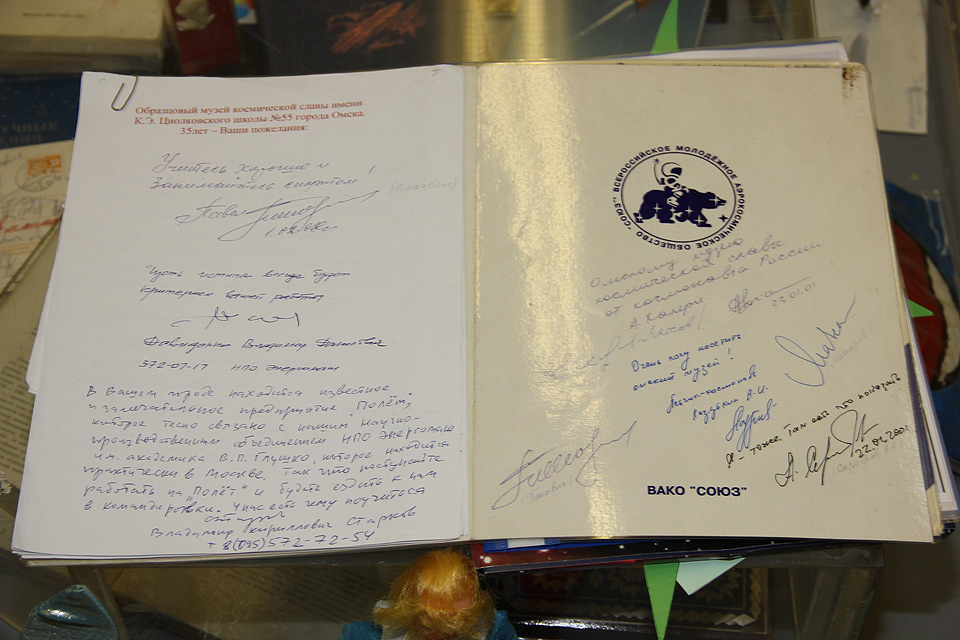 Образцовый музей космической славы имени
К.Э. Циолковского школы №55 города Омска.
35лет – Ваши пожелания:
Учитесь хорошо и
Занимайтесь спортом!
(Попович)
Пусть истина всегда будет
критерием вашей работы.
Владимир
572-07-17 НПО Энергомаш
В Вашем городе находится известное
и замечательное предприятие "Полёт",
которое тесно связано с нашим Научно-
производственным объединением НПО Энергомаш
им. академика В.П. Глушко, которое находится
практически в Москве. Так что поступайте
работать на "Полёт" и будете ездить к нам
в командировки. У нас есть чему поучиться
Владимир Кириллович Старков
т 8(095)572-72-54
ВСЕРОССИЙСКОЕ МОЛОДЁЖНОЕ АЭРОКОСМИЧЕСКОЕ ОБЩЕСТВО "СОЮЗ"
Омскому музею
космической славы
от космонавта России
А. Калери
23.01.01
Очень хочу посетить
омский музей!
Лётчик-космонавт
Лазуткин А.И.
Я тоже там
22.01.2001
ВАКО "СОЮЗ"
УЧНЫЕ